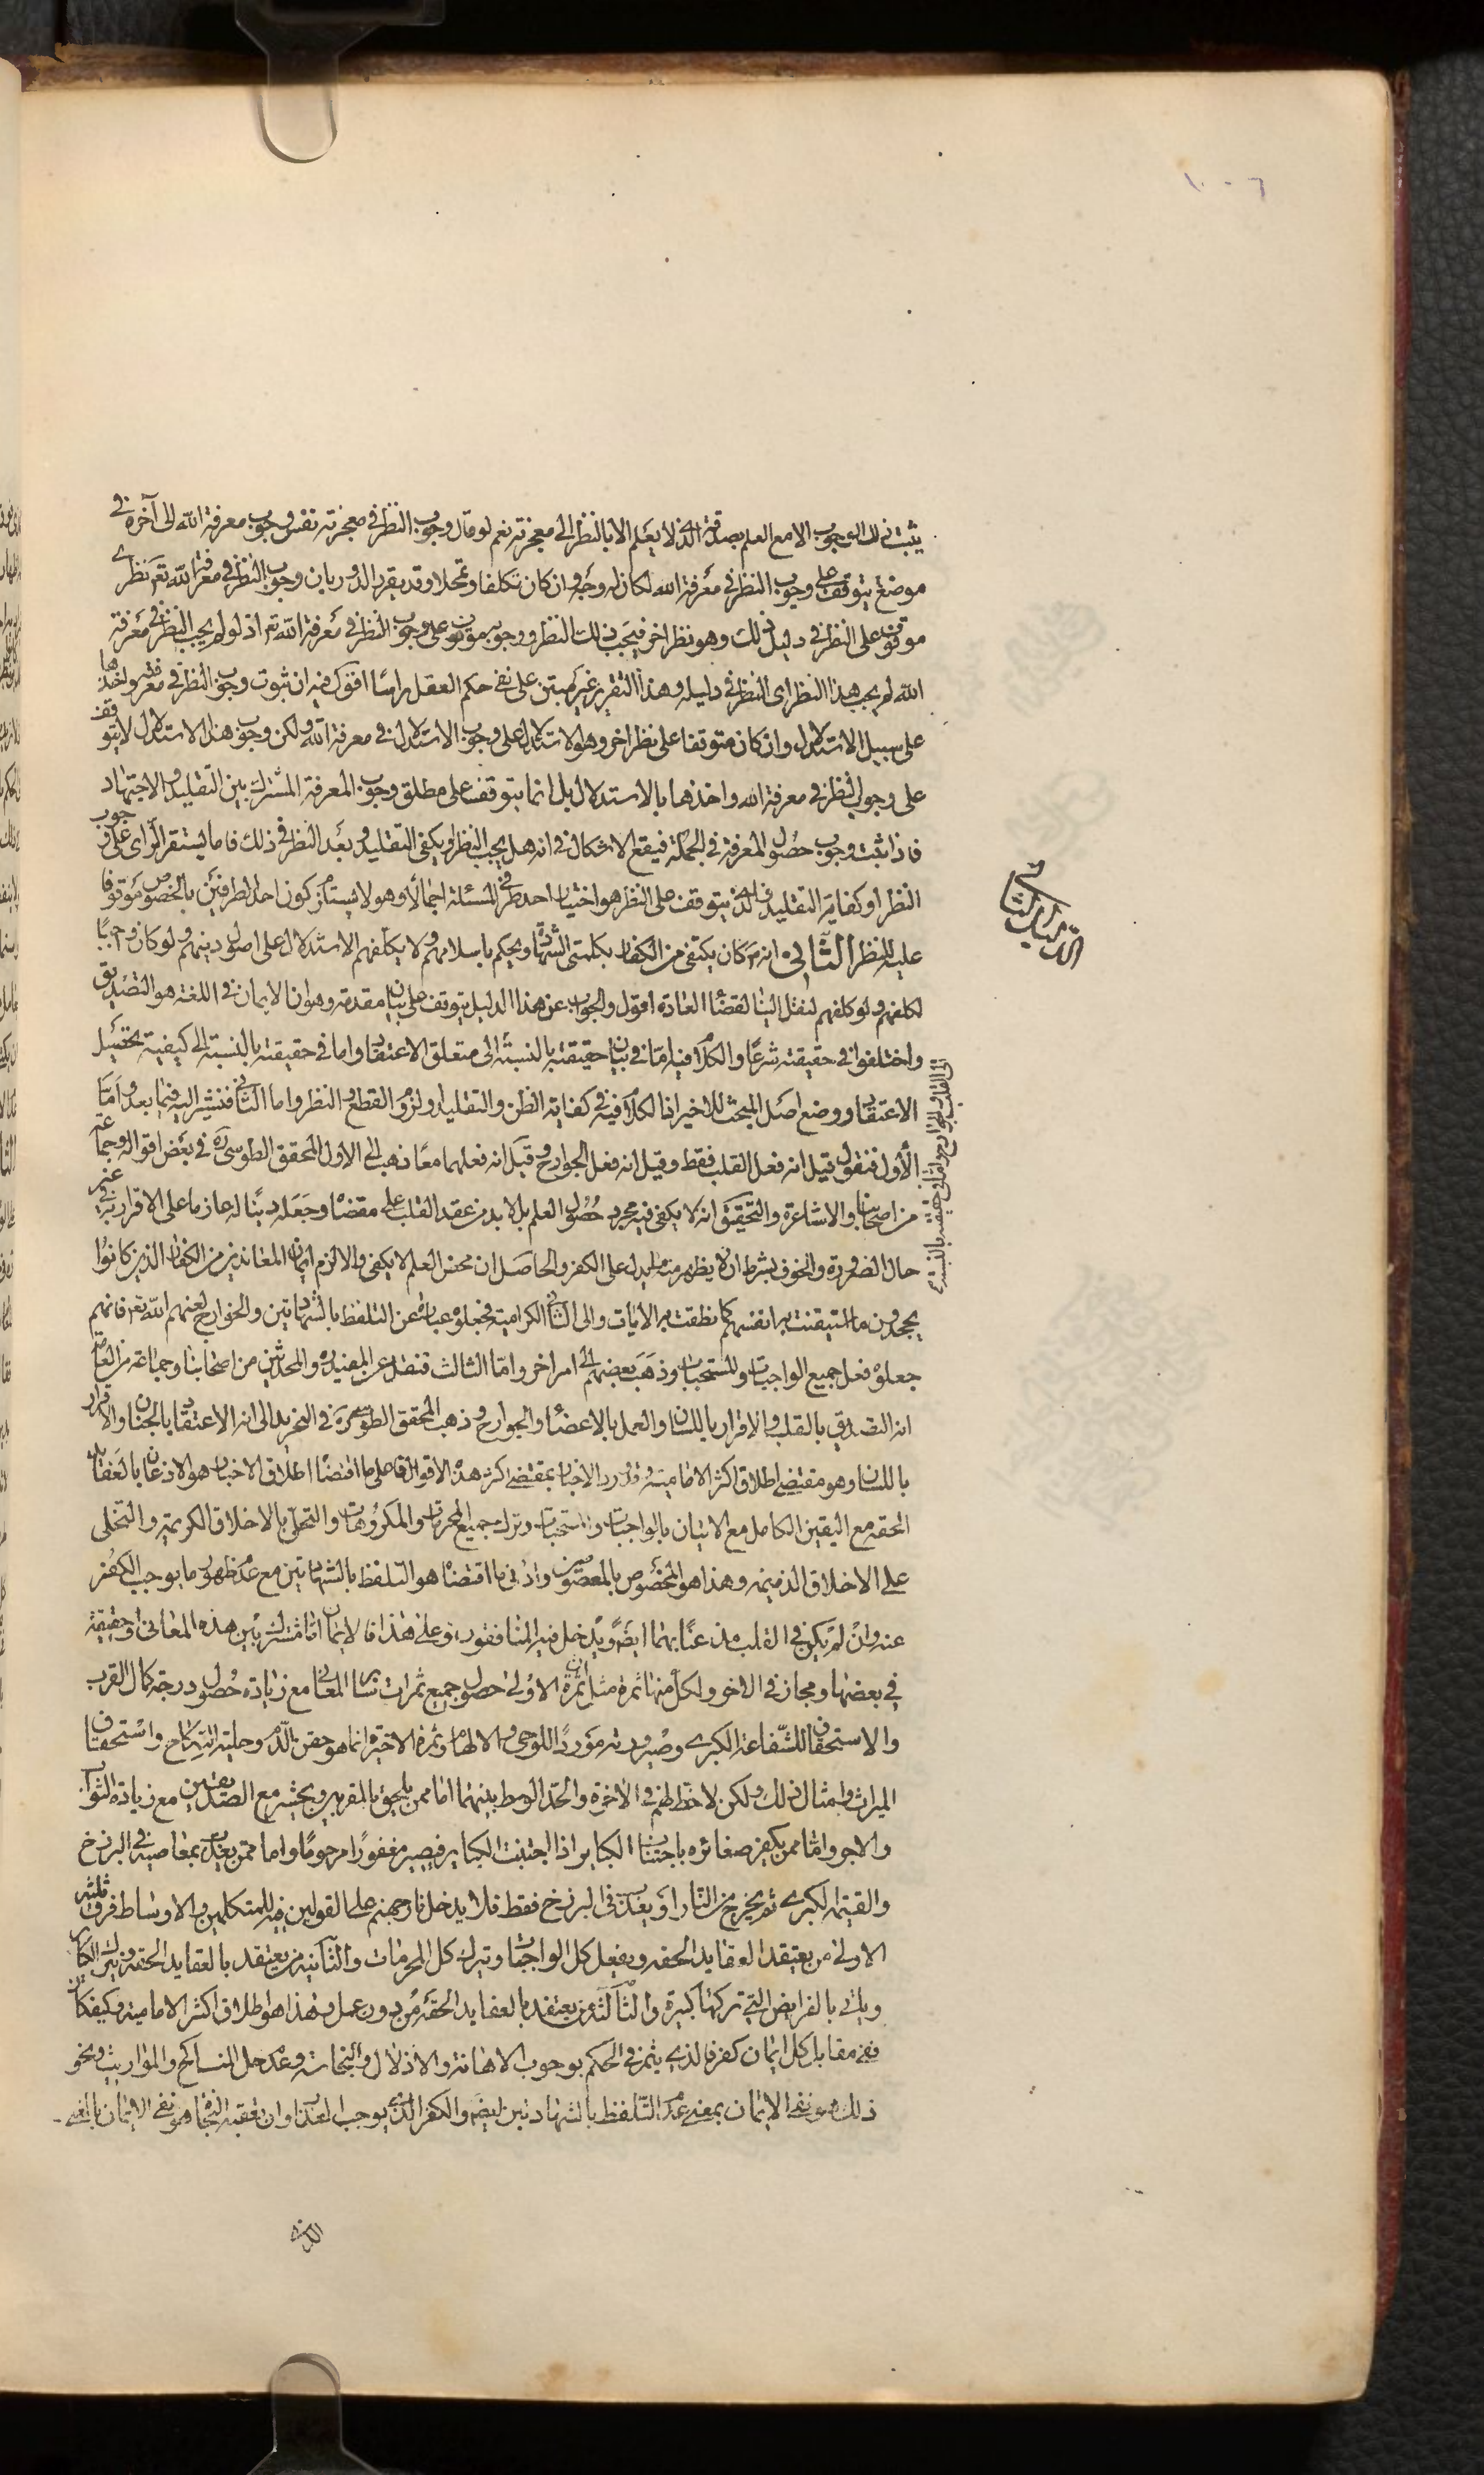 ١٠٠٦
يثبت ذلك الوجوب الا مع العلم بصدقه الذى لا يعلم الا بالنظر الى معجزته نعم لو قال وجوب النظر فى معجزته نفس وجوب معرفة الله الى آخره فى
موضع يتوقف على وجوب النظر فى معرفة الله لكان له وجه وان كان تكلفا وتمحلا وقد يقرر الدور بان وجوب النظر فى معرفة الله تعالى نظرى
موقوف على النظر فى دليل ذلك وهو نظر اخر فيجب ذلك النظر ووجوبه موقوف على وجوب النظر فى معرفة الله تع اذ لو لم يجب النظر فى معرفة
الله لم يجب هذا النظر اى النظر فى دليله وهذا التقرير غير مبتن على نفى حكم العقل راسًا اقول فيه ان ثبوت وجوب النظر فى معرفته واخذها
على سبيل الاستدلال وان كان متوقفا على نظر اخر وهو الاستدلال على وجوب الاستدلال فى معرفة الله ولكن وجوب هذا الاستدلال لا يتوقف
على وجوب النظر فى معرفة الله واخذها بالاستدلال بل انما يتوقف على مطلق وجوب المعرفة المشترك بين التقليد والاجتهاد
فاذا ثبت وجوب حصول المعرفة فى الجملة فيقع الاشكال فى انه هل يجب النظر او يكفى التقليد وبعد النظر فى ذلك فاما يستقر الراى على وجوب
النظر او كفاية التقليد فالذى يتوقف على النظر هو اختيار احد طرفى المسئلة اجمالا وهو لا يستلزم كون احد الطرفين بالخصوص موقوفا
عليه للنظر الثانى انه ص كان يكتفى من الكفار بكلمتى الشهادة ويحكم باسلامهم ولا يكلفهم الاستدلال على اصول دينهم ولو كان واجبًا
لكلفهم ولو كلفهم لنقل الينا لقضاء العادة اقول والجواب عن هذا الدليل يتوقف على بيان مقدمة وهو ان الايمان فى اللغة هو التصديق
واختلفوا فى حقيقته شرعًا والكلام فيه اما فى بيان حقيقته بالنسبة الى متعلق الاعتقاد واما فى حقيقته بالنسبة الى كيفية تحصيل
الاعتقاد ووضع اصل المبحث للاخير اذ الكلام فيه فى كفاية الظن والتقليد او لزوم القطع والنظر واما الثانى فنشير اليه فيما بعد واما
الأول فنقول قيل انه فعل القلب فقط وقيل انه فعل الجوارح وقيل انه فعلهما معًا ذهب الى الاول المحقق الطوسى ره فى بعض اقواله وجماعة
من اصحابنا والاشاعرة والتحقيق انه لا يكفى فيه مجرد حصول العلم بل لا بد من عقد القلب على مقتضاه وجعله دينًا له عازما على الاقرار به فى غير
حال الضرورة والخوف بشرط ان لا يظهر منه ما يدل على الكفر والحاصل ان محض العلم لا يكفى والا لزم ايمان المعاندين من الكفار الذين كانوا
يجحدون ما استيقنت به انفسهم كما نطقت به الايات والى الثانى الكرامية فجعلوه عبارة عن التلفظ بالشهادتين والخوارج لعنهم الله تع فانهم
جعلوه فعل جميع الواجبات والمستحبات وذهب بعضهم الى امر اخر واما الثالث فنقل عن المفيد ره والمحدثين من اصحابنا وجماعة من العامة
انه التصديق بالقلب والاقرار باللسان والعمل بالاعضاء والجوارح وذهب المحقق الطوسى ره فى التجريد الى انه الاعتقاد بالجنان والاقرار
باللسان وهو مقتضى اطلاق اكثر الامامية وقد ورد الاخبار بمقتضى اكثر هذه الاقوال فاعلى ما اقتضاه اطلاق الاخبار هو الاذعان بالعقايد
الحقه مع اليقين الكامل مع الاتيان بالواجبات والمستحبات وترك جميع المحرمات والمكروهات والتحلى بالاخلاق الكريمة والتخلى
على الاخلاق الذميمه وهذا هو المخصوص بالمعصومين وادنى ما اقتضاه هو التلفظ بالشهادتين مع عدم ظهور ما يوجب الكفر
عنه وان لم يكن فى القلب مذعنًا بهما ايضًا ويدخل فيه المنافقون وعلى هذا فالايمان اما مشترك بين هذه المعانى او حقيقة
فى بعضها ومجاز فى الاخر ولكل منها ثمرة مثل ان ثمرة الاولى حصول جميع ثمرات ساير المعانى مع زيادة حصول درجة كمال القرب
والاستحقاق للشفاعة الكبرى وصيرورته موردًا للوحى والالهام وثمرة الاخيرة انما هو حقن الدم وحلية النكاح واستحقاق
الميراث وامثال ذلك ولكن لا حظ لهم فى الاخرة والحد الوسط بينهما اما ممن يلحق بالمقربين ويحشر مع الصديقين مع زيادة الثواب
والاجر واما ممن يكفر صغائره باجتناب الكباير اذا اجتنبت الكباير فيصير مغفورًا مرحومًا واما ممن يعذب بمعاصيه فى البرزخ
والقيمة الكبرى ثم يخرج من النار او يعذب فى البرزخ فقط فلا يدخل نار جهنم على القولين فيه للمتكلمين والاوساط فرق ثلثه
الاولى من يعتقد العقايد الحقه ويفعل كل الواجبات ويترك كل المحرمات والثانية من يعتقد بالعقايد الحقه ويترك الكباير
وياتى بالفرايض التى تركها كبيرة والثالثة من يعتقد بالعقايد الحقه من دون عمل وهذا هو اطلاق اكثر الامامية وكيف كان
ففى مقابل كل ايمان كفر فالذى يثمر فى الحكم بوجوب الاهانة والاذلال والنجاسة وعدم حل المناكح والمواريث ونحو
ذلك هو نفى الايمان بمعنى عدم التلفظ بالشهادتين ايضًا والكفر الذى يوجب العذاب وان تعقبه النجاة هو نفى الايمان بالمعنى
الى القلب والجوارح واما فى حقيقته بالنسبة
الدليل الثانى
الذى